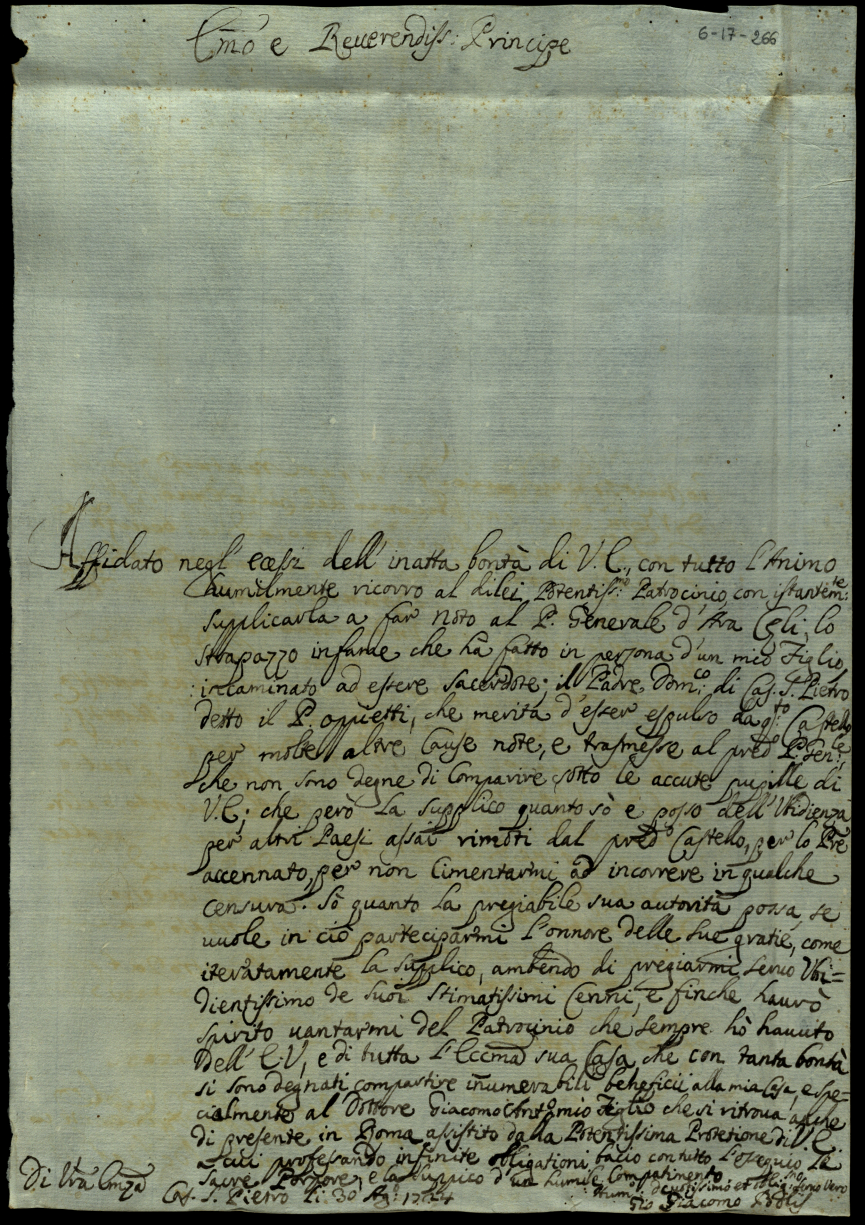 Em̃o e Reverendiss: Principe
6-17-266
Affidato negl'eccessi dell'inatta bontà di V. E., con tutto l'Animo
humilmente ricorro al dilei Potentiss:mo Patrocinio, con istantem:te
supplicarla a far noto al P. Generale d'Ara Celi, lo
strapazzo infame che hà fatto in persona d'un mio Figlio,
incaminato ad essere Sacerdote; il Padre Dom:co di Cas. S. Pietro
detto il P. che merita d'esser espulso da q:to Castello
per molte altre Cause note, e trasmesse al pred:o P. Gen:le
che non sono degne di Comparire sotto le accute pupille di
V. E.; che però la supplico quanto sò e posso dell'Ubidienza
per altri Paesi assai rimoti dal pred:o Castello, per lo Pre
accennato, per non Cimentarmi ad incorrere in qualche
censura. Sò quanto la pregiabile sua autorità possa, se
vuole in ciò parteciparmi l'onnore delle sue gratie, come
iteratamente la supplico, ambendo di pregiarmi servo Ubi=
dientissimo de suoi stimatissimi Cenni, e finche havrò
spirito vantarmi del Patrocinio che sempre hò havuto
dell'E. V., e di tutta l'Eccma sua Casa, che con tanta bontà
si sono degnati compartire inumerabili beneficii alla mia Casa, e spe=
cialmente al Dottore Giacomo Antonio Figlio che si ritrova anche
di presente in Roma assistito dalla Potentissima Protetione di V. E.
a cui professando infinite obligationi bacio con tutto l'ossequio la
Sacra Porpora, e la supplico d'un humile Compatimento
Di Vra Emza
Cas. S. Pietro li 30 1724
Humil: devotissimo et oblig:mo servo vero
Gio Giacomo